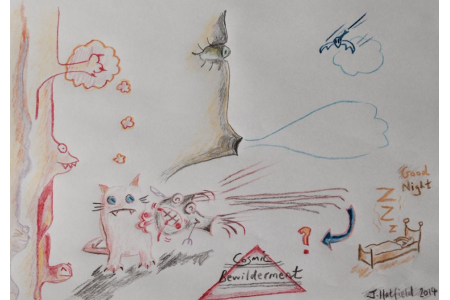 Good
Night
ZZZ
?
Cosmic
Bewilderment
J. Hatfield 2014